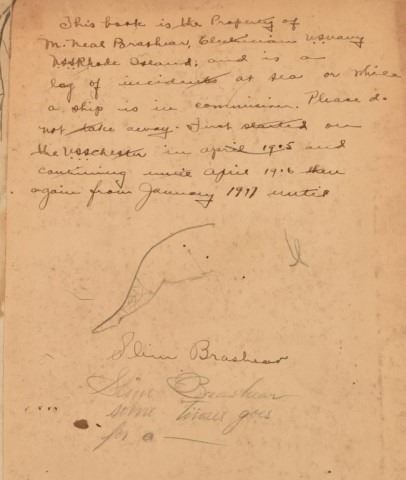 This book is the Property of
M. Neal Brashear, Electrician US Navy
USS Rhode Island, and is a
log of incidents at sea or while
a ship is in commision. Please do
not take away. First started on
the USS Chester in april 1905 and
continuing until April 1906 then
again from January 1911 until
Slim Brashear
Slim Brashear
some times goes
for a